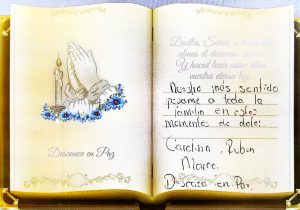 Descanse en Paz
Dadles, Señor, a todas las
almas el descanso eterno
Y haced lucir sobre ellas
vuestra eterna luz.
Nuestro más sentido
pésame a toda la
familia en estos
momentos de dolor.
Carolina, Ruben
Descansa en Paz.